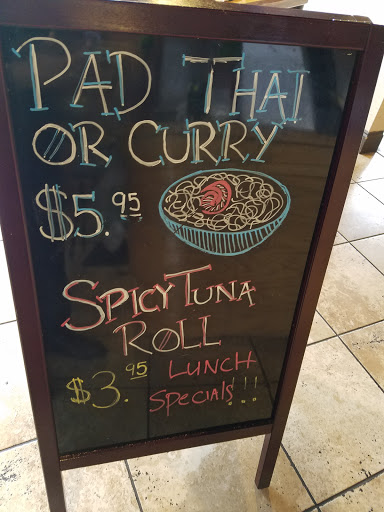 PAD THAI
OR CURRY
$5.95
SPICY TUNA
ROLL
$3.95 LUNCH
SPECIALS!!!